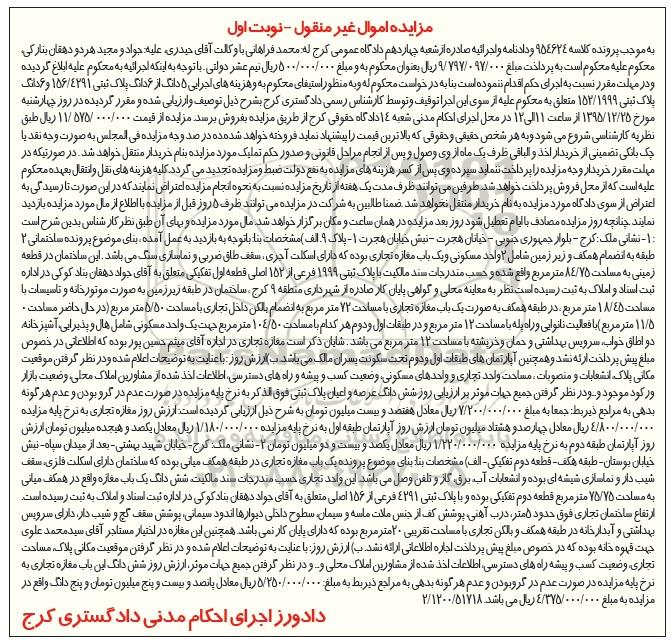 مزایده اموال غیر منقول – نوبت اول
به موجب پرونده کلاسه ۹۵۴۶۲۴ و دادنامه و اجرائیه صادره از شعبه چهاردهم دادگاه عمومی کرج له: محمد فراهانی با وکالت آقای حیدری، علیه: جواد و مجید هر دو دهقان بناد کی،
محکوم علیه محکوم است به پرداخت مبلغ ۹/۷۹۷/۰۹۷/۰۰۰ ریال بعنوان محکوم به و مبلغ ۵۰۰/۰۰۰/۰۰۰ ریال نیم عشر دولتی. با توجه به اینکه اجرائیه به محکوم علیه ابلاغ گردیده
و در مهلت مقرر نسبت به اجرای حکم اقدام ننموده است بنا به درخواست محکوم له و به منظور استیفای محکوم به و هزینه های اجرایی ۵ دانگ از ۶ دانگ پلاک ثبتی ۱۵۶/۴۲۹۱ و ۶ دانگ
پلاک ثبتی ۱۵۲/۱۹۹۹ متعلق به محکوم علیه از سوی این اجرا توقیف و توسط کارشناس رسمی دادگستری کرج بشرح ذیل توصیف و ارزیابی شده و مقرر گردیده در روز چهارشنبه
مورخ ۱۳۹۵/۱۲/۲۵ از ساعت ۱۱ الی ۱۲ در محل اجرای احکام مدنی شعبه ۱۴ دادگاه حقوقی کرج از طریق مزایده بفروش برسد. مزایده از قیمت ۱۱/۵۷۵/۰۰۰/۰۰۰ ریال طبق
نظریه کارشناسی شروع می شود و به هر شخص حقیقی و حقوقی که بالاترین قیمت را پیشنهاد نماید فروخته خواهد شد ده درصد وجه مزایده فی المجلس به صورت وجه نقد یا
چک بانکی تضمینی از خریدار اخذ و الباقی ظرف یک ماه از وی وصول و پس از انجام مراحل قانونی و صدور حکم تملیک مورد مزایده بنام خریدار منتقل خواهد شد. در صورتیکه در
مهلت مقرر خریدار وجه مزایده را پرداخت ننماید سپرده وی پس از کسر هزینه های مزایده به نفع دولت ضبط و مزایده تجدید می گردد. کلیه هزینه های نقل و انتقال بعهده محکوم
علیه است که از محل فروش پرداخت خواهد شد. طرفین می توانند ظرف مدت یک هفته از تاریخ مزایده نسبت به نحوه انجام مزایده اعتراض نمایند که در این صورت تا رسیدگی به
اعتراض از سوی دادگاه مورد مزایده به نام خریدار منتقل نخواهد شد. ضمنا طالبین به شرکت در مزایده می توانند ظرف ۵ روز قبل از مزایده با اطلاع از مال مورد مزایده بازدید
نمایند. چنانچه روز مزایده مصادف با ایام تعطیل شود روز بعد مزایده در همان ساعت و مکان برگزار خواهد شد. مال مورد مزایده و بهای آن طبق نظر کارشناس بدین شرح است
: ۱- نشانی ملک: کرج – بلوار جمهوری جنوبی – خیابان هجرت – نبش خیابان هجرت ۱ – پلاک ۹. الف) مشخصات بنا: با توجه به بازدید به عمل آمده، بنای موضوع پرونده ساختمانی ۲
طبقه به انضمام همکف و زیر زمین شامل ۲ واحد مسکونی و یک باب مغازه تجاری بوده که دارای اسکلت آجری، سقف طاق ضربی و نماسازی سنگ می باشد. این ساختمان در قطعه
زمینی به مساحت ۸۴/۷۵ مترمربع واقع شده و حسب مندرجات سند مالکیت با پلاک ثبتی ۱۹۹۹ فرعی از ۱۵۲ اصلی قطعه اول تفکیکی متعلق به آقای جواد دهقان بناد کوکی در اداره
ثبت اسناد و املاک به ثبت رسیده است. نظر به معاینه محلی و گواهی پایان کار صادره از شهرداری منطقه ۹ کرج، ساختمان در طبقه زیرزمین به صورت موتورخانه و تاسیسات با
مساحت ۱۸/۴۵ متر مربع. در طبقه همکف به صورت یک باب مغازه تجاری با مساحت ۷۲ متر مربع به انضمام بالکن داخل تجاری با مساحت ۵/۵۰ متر مربع (در حال حاضر مساحت
۱۱/۵ مترمربع) با فعالیت نانوایی و راه پله با مساحت ۱۲ متر مربع و در طبقات اول و دوم هر کدام با مساحت ۱۰۴/۵۰ مترمربع جهت یک واحد مسکونی شامل هال و پذیرایی، آشپزخانه،
دو اطاق خواب، سرویس بهداشتی و حمام و خرپشته با مساحت ۱۲ متر مربع می باشد. شایان ذکر است مغازه تجاری در اجاره آقای میثم حسین پور بوده که اطلاعاتی در خصوص
مبلغ پیش پرداخت ارئه نشد و همچنین آپارتمان های طبقات اول و دوم تحت سکونت پسران مالک می باشد. ب) ارزش روز: با عنایت به توضیحات اعلام شده و در نظر گرفتن موقعیت
مکانی پلاک، انشعابات و منصوبات، مساحت واحد تجاری و واحدهای مسکونی، وضعیت کسب و پیشه و راه های دسترسی، اطلاعات اخذ شده از مشاورین املاک محلی، وضعیت بازار
و رکود موجود و... و در نظر گرفتن جمیع جهات موثر بر ارزیابی روز شش دانگ عرصه و اعیان پلاک ثبتی فوق الذکر به نرخ پایه مزایده در صورت عدم در گرو بودن و عدم هر گونه
بدهی به مراجع ذیربط: جمعا به مبلغ ۷/۲۰۰/۰۰۰/۰۰۰ ریال معادل هفتصد و بیست میلیون تومان به شرح ذیل ارزیابی گردیده است: ارزش روز مغازه تجاری به نرخ پایه مزایده
۴/۸۰۰/۰۰۰/۰۰۰ ریال معادل چهارصد و هشتاد میلیون تومان ارزش روز آپارتمان طبقه اول به نرخ پایه مزایده ۱/۱۸۰/۰۰۰/۰۰۰ ریال معادل یکصد و هیجده میلیون تومان ارزش
روز آپارتمان طبقه دوم به نرخ پایه مزایده ۱/۲۲۰/۰۰۰/۰۰۰ ریال معادل یکصد و بیست و دو میلیون تومان ۲- نشانی ملک: کرج- خیابان شهید بهشتی- بعد از میدان سپاه- نبش
خیابان بوستان- طبقه هکف- قطعه دوم تفکیکی- الف) مشخصات بنا: بنای موضوع پرونده یک باب مغازه تجاری در طبقه همکف مبانی بوده که ساختمان دارای اسکلت فلزی، سقف
شیب دار و نماسازی شیشه ای بوده و انشعابات آب، برق، گاز و تلفن وصل می باشد. این واحد تجاری حسب مندرجات سند مالکیت، شش دانگ یک باب مغازه واقع در همکف مبانی
به مساحت ۷۵/۷۵ مترمربع قطعه دوم تفکیکی بوده و با پلاک ثبتی ۴۲۹۱ فرعی از ۱۵۶ اصلی متعلق به آقای جواد دهقان بناد کوکی در اداره ثبت اسناد و املاک به ثبت رسیده است.
ارتفاع ساختمان تجاری فوق حدود ۵ متر، درب آهنی، پوشش کف از جنس ملات ماسه و سیمان، سطوح داخلی دیوارها اندود سیمانی، پوشش سقف گچ و شیب دار، دارای سرویس
بهداشتی و آبدارخانه در طبقه همکف و بالکن تجاری با مساحت تقریبی ۲۰ مترمربع بوده که دارای پایان کار نمی باشد. همچنین این مغازه در اختیار مستاجر آقای سیدمحمد علوی
جهت قهوه خانه بوده که در خصوص مبلغ پیش پرداخت اجاره اطلاعاتی ارائه نشد. ب) ارزش روز: با عنایت به توضیحات اعلام شده و در نظر گرفتن موقعیت مکانی پلاک، مساحت
تجاری، وضعیت کسب و پیشه راه های دسترسی، اطلاعات اخذ شده از مشاورین املاک محلی و... و در نظر گرفتن جمیع جهات موثر، ارزش روز شش دانگ این باب مغازه تجاری به
نرخ پایه مزایده در صورت عدم در گرو بودن و عدم هر گونه بدهی به مراجع ذیربط به مبلغ: ۵/۲۵۰/۰۰۰/۰۰۰ ریال معادل پانصد و بیست و پنج میلیون تومان و پنج دانگ واقع در
مزایده به مبلغ ۴/۳۷۵/۰۰۰/۰۰۰ ریال می باشد. ۲/۱۲۰۰/۵۱۷۱۸
دادورز اجرای احکام مدنی دادگستری کرج